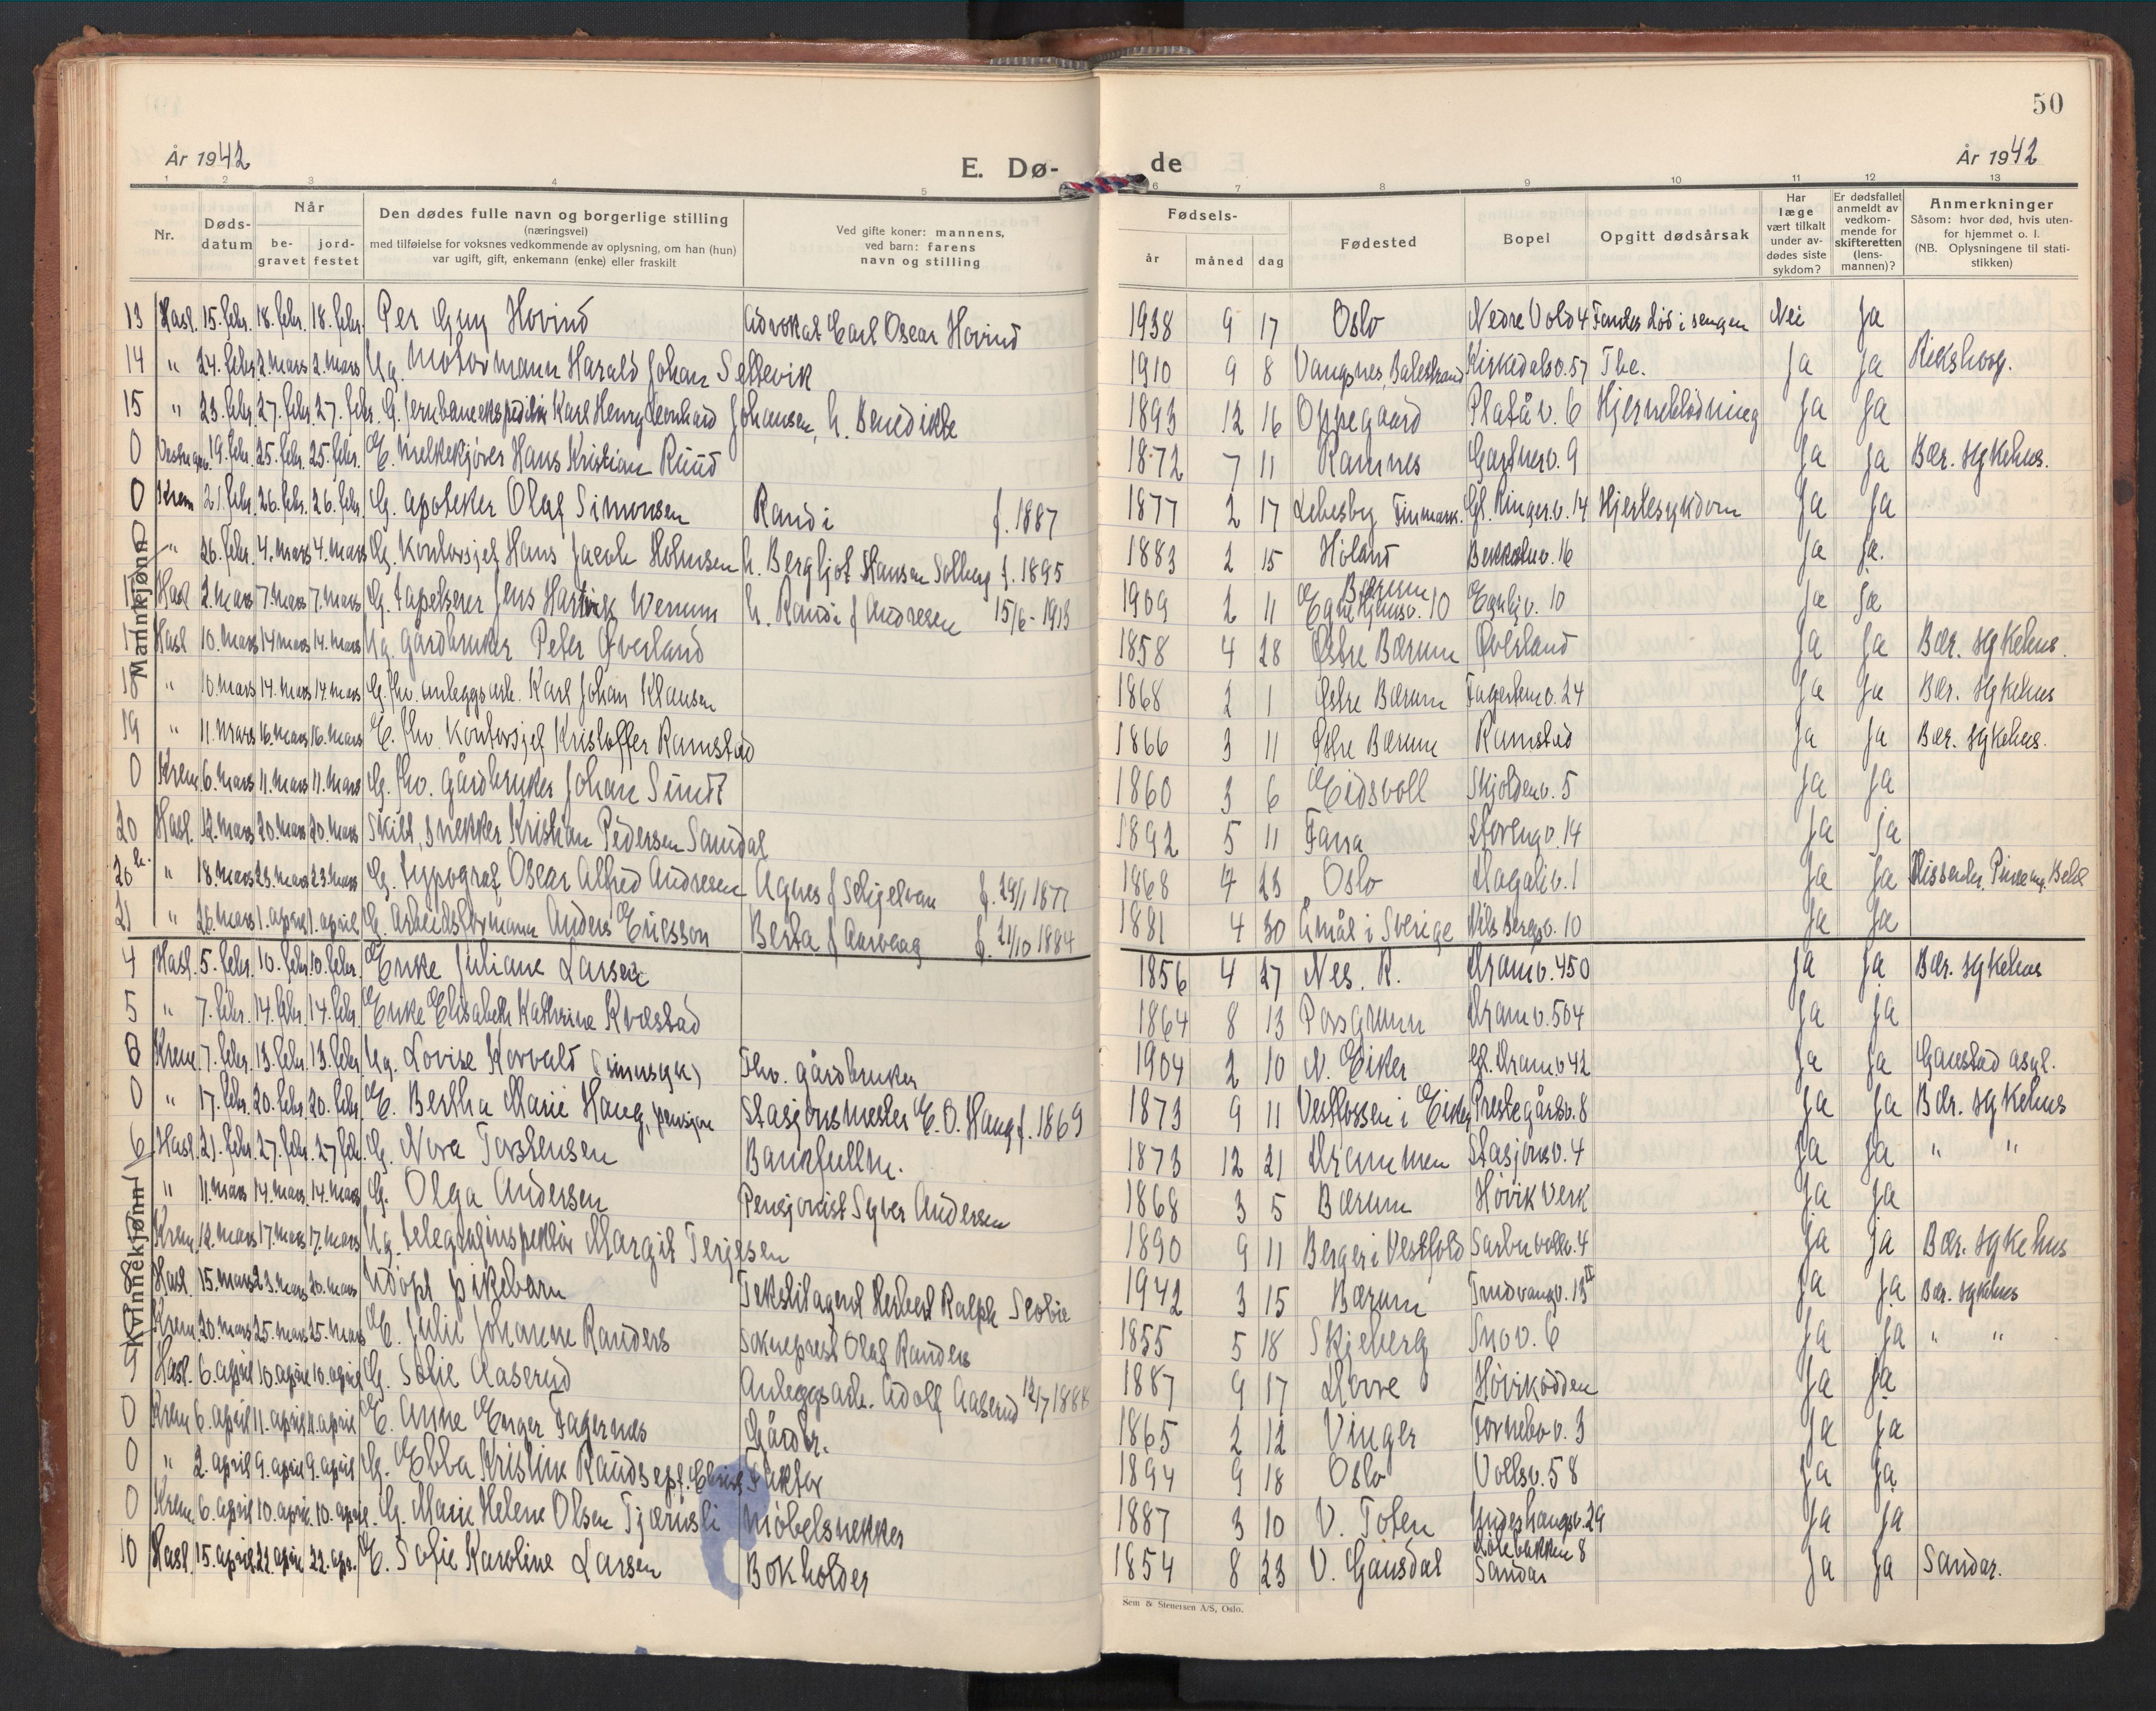 50
År 1942
E. Dø-
de
År 1942
1 2 3 4 5 6 7 8 9 10 11 12 13
Nr.
Døds-
datum
Når
be-
gravet
jord-
festet
Den dødes fulle navn og borgerlige stilling
(næringsvei)
med tilføielse for voksnes vedkommende av oplysning, om han (hun)
var ugift, gift, enkemann (enke) eller fraskilt
Ved gifte koner: mannens,
ved barn: farens
navn og stilling
Fødsels-
år måned dag
Fødested
Bopel
Opgitt dødsårsak
Har
læge
vært tilkalt
under av-
dødes siste
sykdom?
Er dødsfallet
anmeldt av
vedkom-
mende for
skifteretten
(lens-
mannen)?
Anmerkninger
Såsom: hvor død, hvis uten-
for hjemmet o. l.
(NB. Oplysningene til stati-
stikken)
Mannkjønn
13 Hasl. 15. febr. 18. febr. 18. febr. Per Guy Hovind Advokat Carl Oscar Hovind 1938 9 17 Oslo Nedre Voldv 4 Fandes død i sengen Nei Ja
14 " 24. febr. 2. mars 2. mars Ug. Motormann Harald Johan Sellevik 1910 9 8 Vangsnes, Balestrand Kirkedalsv. 57 Tbc. Ja Ja Rikshosp.
15 " 23. febr. 27. febr. 27. febr. G. Jernbaneekspeditør Karl Henry Leonhard Johansen, h. Benedikte 1893 12 16 Oppegaard Platåv. 6 Hjerneblødning Ja Ja
0 Vestre grav. 19. febr. 25. febr. 25. febr. E. Melkekjører Hans Kristian Ruud 1872 7 11 Ramnes Gartnerv. 9 Ja Ja Bær. sykehus.
0 Krem 21. febr. 26. febr. 26. febr. G. apoteker Olaf Simonsen Randi f. 1887 1877 2 17 Lebesby Finmark. Gl. Ringer.v. 14 Hjertesykdom Ja Ja
0 " 26. febr. 4. mars 4. mars G. Kontorsjef Hans Jacob Holmsen h. Bergljot Hansen Solberg f. 1895 1883 2 15 Høland Bekkalv. 16 Ja Ja.
Hasl 2. mars 7. mars 7. mars G. tapetserer Jens Hartvik Wenum h. Randi f Andresen 15/6-1913 1909 2 11 Bærum Egne Hjemsv. 10 Egnehjv. 10 Ja Ja
17 Hasl 10. mars 14 mars 14. mars Ug. gårdbruker Peter Øverland 1858 4 28 Østre Bærum Øverland Ja Ja Bær. sykehus.
18 " 10. mars 14. mars 14. mars G. fhv. anleggsarb. Karl Johan Klausen 1868 2 1 Østre Bærum Fagertunv. 24 Ja Ja Bær. sykehus
19 " 11. mars 16. mars 16. mars E. fhv. Kontorsjef Kristoffer Ramstad 1866 3 11 Østre Bærum Ramstad Ja Ja Bær. sykehus.
0 Krem 6. mars 11. mars 11. mars G. fhv. gårdbruker Johan Sundt 1860 3 6 Eidsvoll Skjoldenv. 5 Ja Ja
20 Hasl. 12. mars 20. mars 20. mars Skilt, snekker Kristian Pedersen Sandal 1892 5 11 Fana Storengv. 14 Ja Ja
20 b. " 18. mars 23. mars 23. mars G. typograf Oscar Alfred Andresen Agnes f Schjelvan f. 29/1 1877 1868 4 23 Oslo Hagaliv. 1 Ja Ja
21 " 26. mars 1. april 1. april G. Arbeidsformann Anders Ericsson Berta f Aarvaag f. 21/10 1884 1881 4 30 Åmål i Sverige Nils Bergsv. 10 Ja Ja
Kvinnekjønn
4 Hasl. 5. febr. 10. febr. 10. febr. Enke Juliane Larsen 1856 4 27 Nes. R. Dramv. 450 Ja Ja Bær. sykehus
5 " 7. febr. 14. febr. 14. febr. Enke Elisabeth Kathrine Kvæstad 1864 8 13 Porsgrunn Dramv. 504 Ja Ja
0 Krem 7. febr. 13. febr. 13. febr. Ug. Lovise Korvald (sinnsyk) Fhv. gårdbruker 1904 2 10 N. Eiker Gl. Dramv 42 Ja Ja Gaustad asyl.
0 " 17. febr. 20. febr. 20. febr. E. Bertha Marie Haug, pensjon Stasjonsmester E. O. Haug f. 1869 1873 9 11 Vestfossen i Eiker Prestegårdsv. 8 Ja Ja Bær. sykehus
6 Hasl. 21. febr. 27. febr. 27 febr. G. Nora Torstensen Bankfullm. 1873 12 21 Drammen Stasjonsv. 4 Ja Ja " "
" 11. mars 14. mars 14. mars G. Olga Andersen Pensjonist Syver Andersen 1868 3 5 Bærum Høvik Verk Ja Ja
Krem 12. mars 17. mars 17. mars Ug. telegrafinspektør Margit Terjesen 1890 9 11 Berger i Vestfold Sarbuvollv. 4 Ja Ja Bær. sykehus
8 Hasl 15. mars 23. mars 20. mars Udøpt pikebarn Tekstilagent Herbert Ralph Scobie 1942 3 15 Bærum Trudvangv. 13 II Ja Ja Bær. sykehus
Krem 20. mars 25. mars 25. mars E. Julie Johanne Randers Sokneprest Olaf Randers 1855 5 18 Skjeberg Snov. 6 Ja Ja " "
9 Hasl. 6. april 10. april 10. april G. Sofie Aaserud Anleggsarb. Adolf Aaserud 12/7 1888 1887 9 17 Høvikodden Ja Ja
0 Krem 6. april 11. april 11. april E. Anne Enger Fagernes Gårdbr. 1865 2 12 Vinger Fornebov. 3 Ja Ja
0 " 2. april 9. april 9. april G. Ebba Kristine Raudsepf. Faktor 1894 9 18 Oslo Vollsv. 58 Ja Ja
0 Krem 6. april 10. april 10. april G. Marie Helene Olsen Tjærnsli Møbelsnekker 1887 3 10 V. Toten 29 Ja Ja
10 Hasl. 15. april 22. april 22. apr. E. Sofie Karoline Larsen Bokholder 1854 8 23 V. Gausdal 8 Sandar Ja Ja Sandar.
Sem & Stenersen A/S, Oslo.